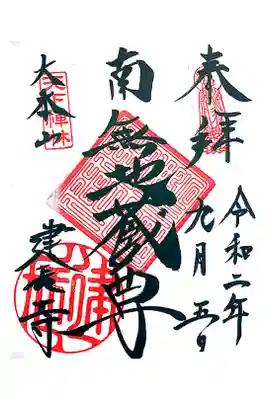 奉拝
令和二年
九月五日
南無地蔵尊
大本山
天下禅林
建長寺